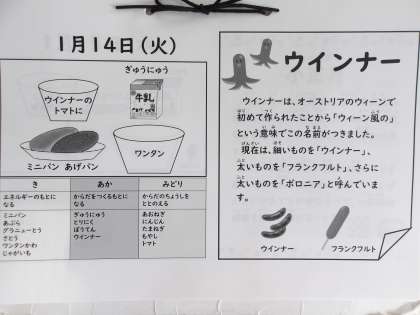 1月14日(火)
ぎゅうにゅう
牛乳
ウインナーの
トマトに
ミニパン あげパン
ワンタン
き
あか
みどり
エネルギーのもとに
なる
からだをつくるもとに
なる
からだのちょうしを
ととのえる
ミニパン
あぶら
グラニューとう
さとう
ワンタンかわ
じゃがいも
ぎゅうにゅう
とりにく
ぼうてん
ウインナー
あおねぎ
にんじん
たまねぎ
もやし
トマト
ウインナー
ウインナーは、オーストリアのウィーンで
初めて作られたことから「ウィーン風の」
という意味でこの名前がつきました。
現在は、細いものを「ウインナー」、
太いものを「フランクフルト」、さらに
太いものを「ボロニア」と呼んでいま
す。
ウインナー
フランクフルト